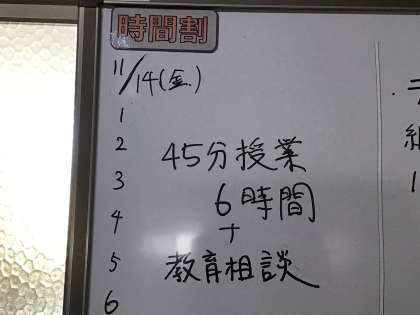 時間割
11/14(金)
1
2
3
4
5
6
45分授業
6時間
+
教育相談
1